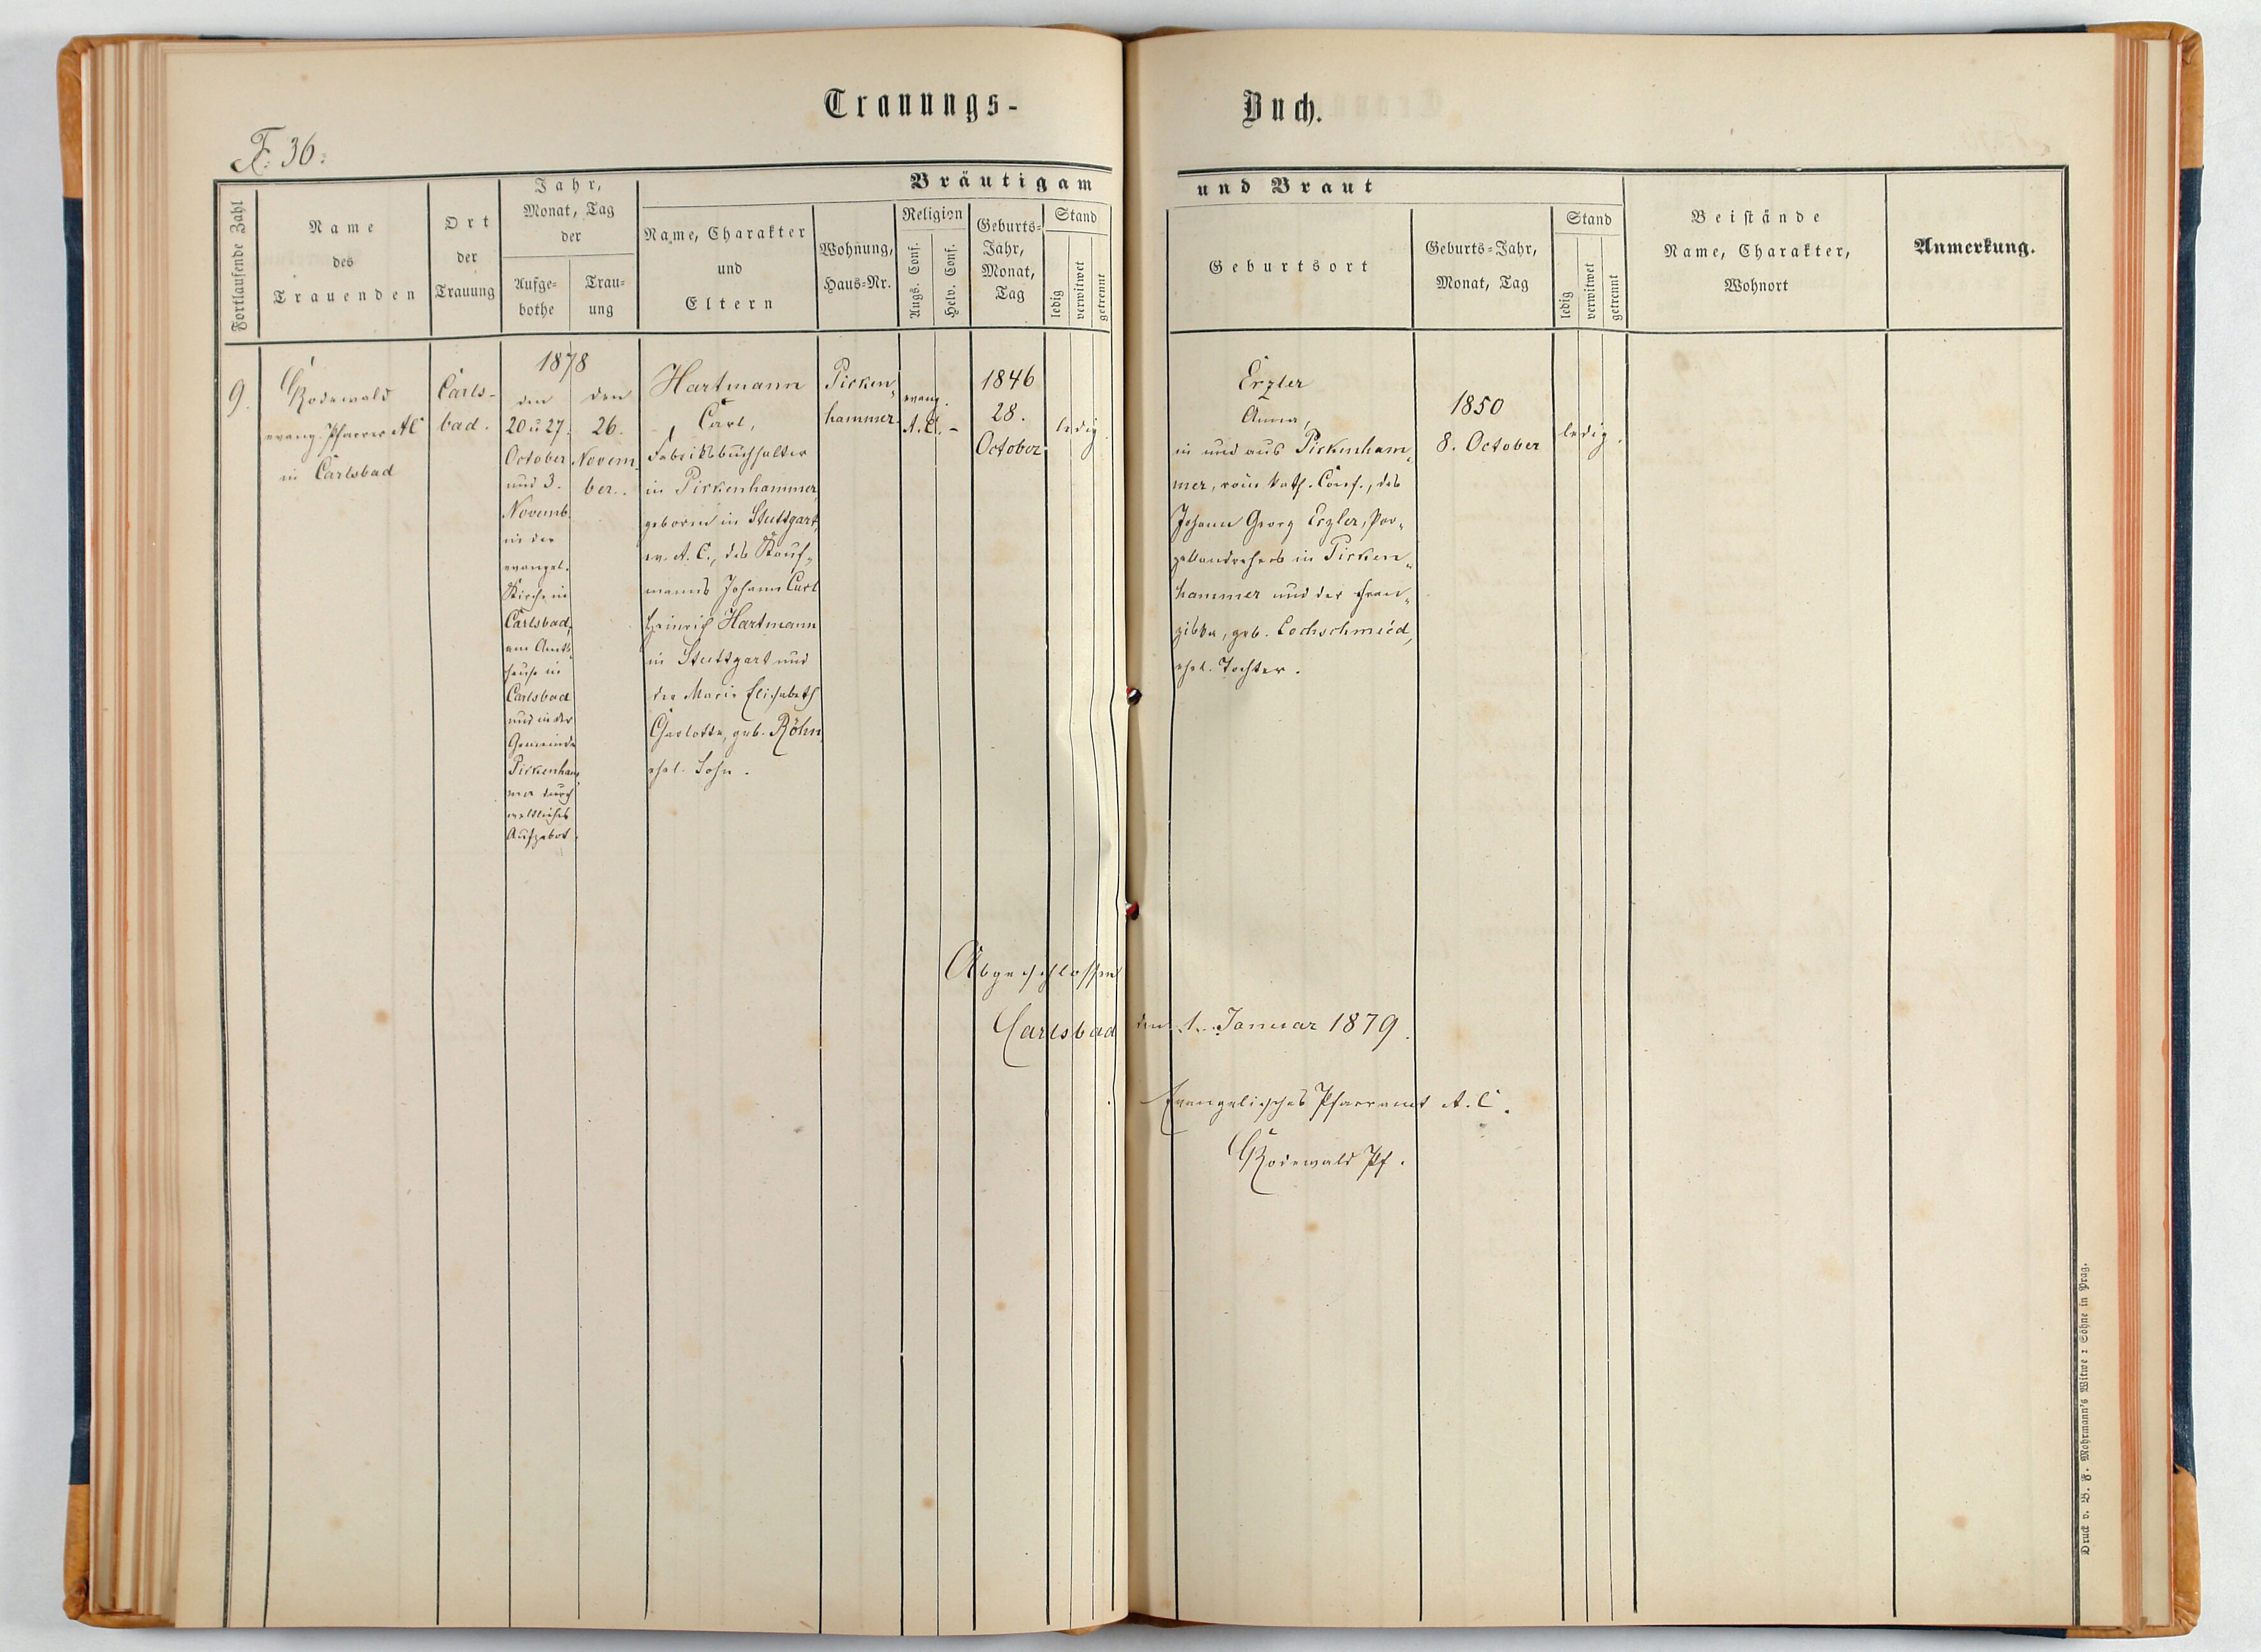 Trauungs-
Buch.
F. 36.
Fortlaufende Zahl
Name
des
Trauenden
Ort
der
Trauung
Jahr,
Monat, Tag
der
Aufge-
bothe
Trau-
ung
Bräutigam
Name, Charakter
und
Eltern
Wohnung,
Haus-Nr.
Religion
Augs. Conf.
Helv. Conf.
Geburts-
Jahr,
Monat,
Tag
Stand
ledig
verwitwet
getrennt
und Braut
Geburtsort
Geburts-Jahr,
Monat, Tag
Stand
ledig
verwitwet
getrennt
Beistände
Name, Charakter,
Wohnort
Anmerkung.
9.
Rodewald
evang. Pfarrer AC
in Carlsbad
Carls-
bad.
1878
den
20 u 27.
October
und 3.
Novemb.
in der
evangel.
Kirche in
Carlsbad,
am Amts-
hause in
Carlsbad
und in der
Gemeinde
Pirkenham-
mer durch
weltliches
Aufgebot.
den
26.
Novem-
ber.
Hartmann
Carl,
Fabriksbuchhalter
in Pirkenhammer,
geboren in Stuttgart,
ev. A. C., des Kauf-
manns Johann Carl
Heinrich Hartmann
in Stuttgart und
der Marie Elisabeth
Charlotte, geb. Röhm,
ehel. Sohn.
Pirken-
hammer.
evang.
A. C. -
1846
28.
October
ledig.
Erzler
Anna,
in und aus Pirkenham-
mer, röm. kath. Conf., des
Johann Georg Erzler, Por-
zellandrehers in Pirken-
hammer und der Fran-
ziska, geb. Lochschmied,
ehel. Tochter.
1850
8. October
ledig.
Abgeschlossen
Carlsbad den 1. Januar 1879.
Evangelisches Pfarramt A. C.
Rodewald Pf.
Druck v. B. F. Mohrmann's Witwe & Söhne in Prag.